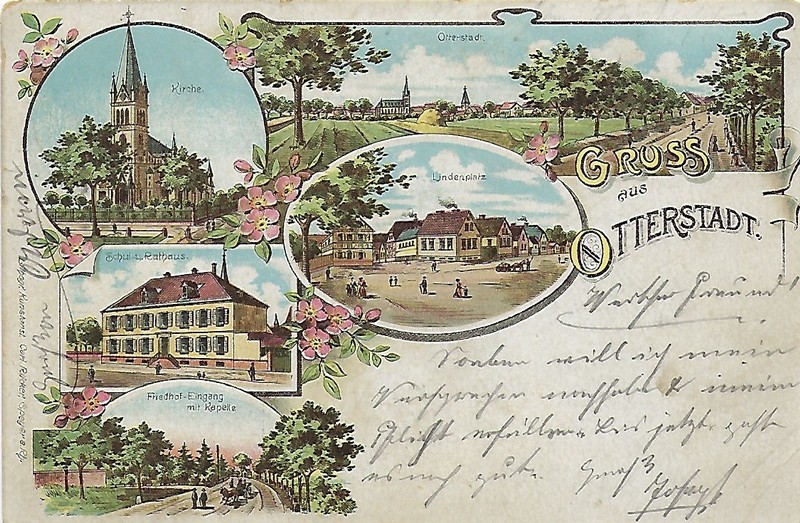 Kirche.
Otterstadt.
Gruss
aus
Otterstadt.
Lindenplatz
Schul- u. Rathaus.
Friedhof-Eingang
mit Kapelle
Werther Freund!
Soeben will ich mein
Versprechen nachholen & meine
Pflicht erfüllen. Bis jetzt geht
es noch gut. Gruß
Josef